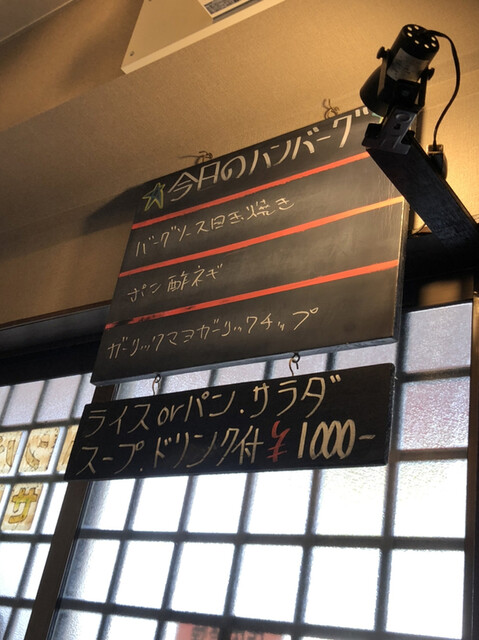 ☆今月のハンバーグ
バーグソース目玉焼き
ポン酢ネギ
ガーリックマヨガーリックチップ
ライスorパン.サラダ
スープ.ドリンク付¥1000-
サ